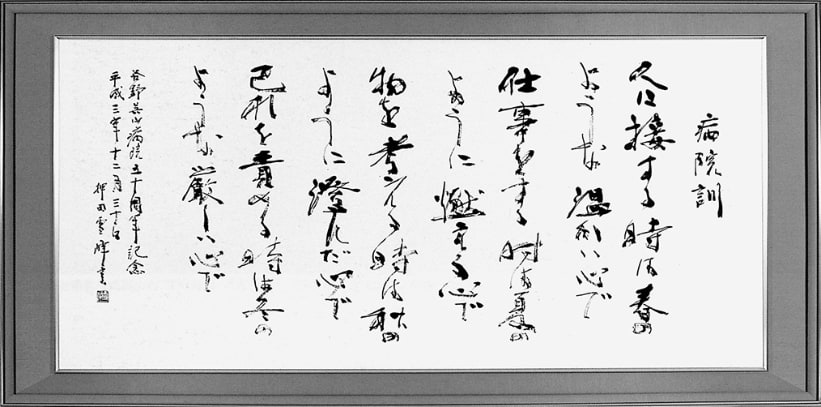 病院訓
人に接する時は春の
ような温かい心で
仕事をする時は夏の
ように燃える心で
物を考える時は秋の
ように澄んだ心で
己れを責める時は冬の
ような厳しい心で
谷野呉山病院五十周年記念
平成三年十二月三十日
書